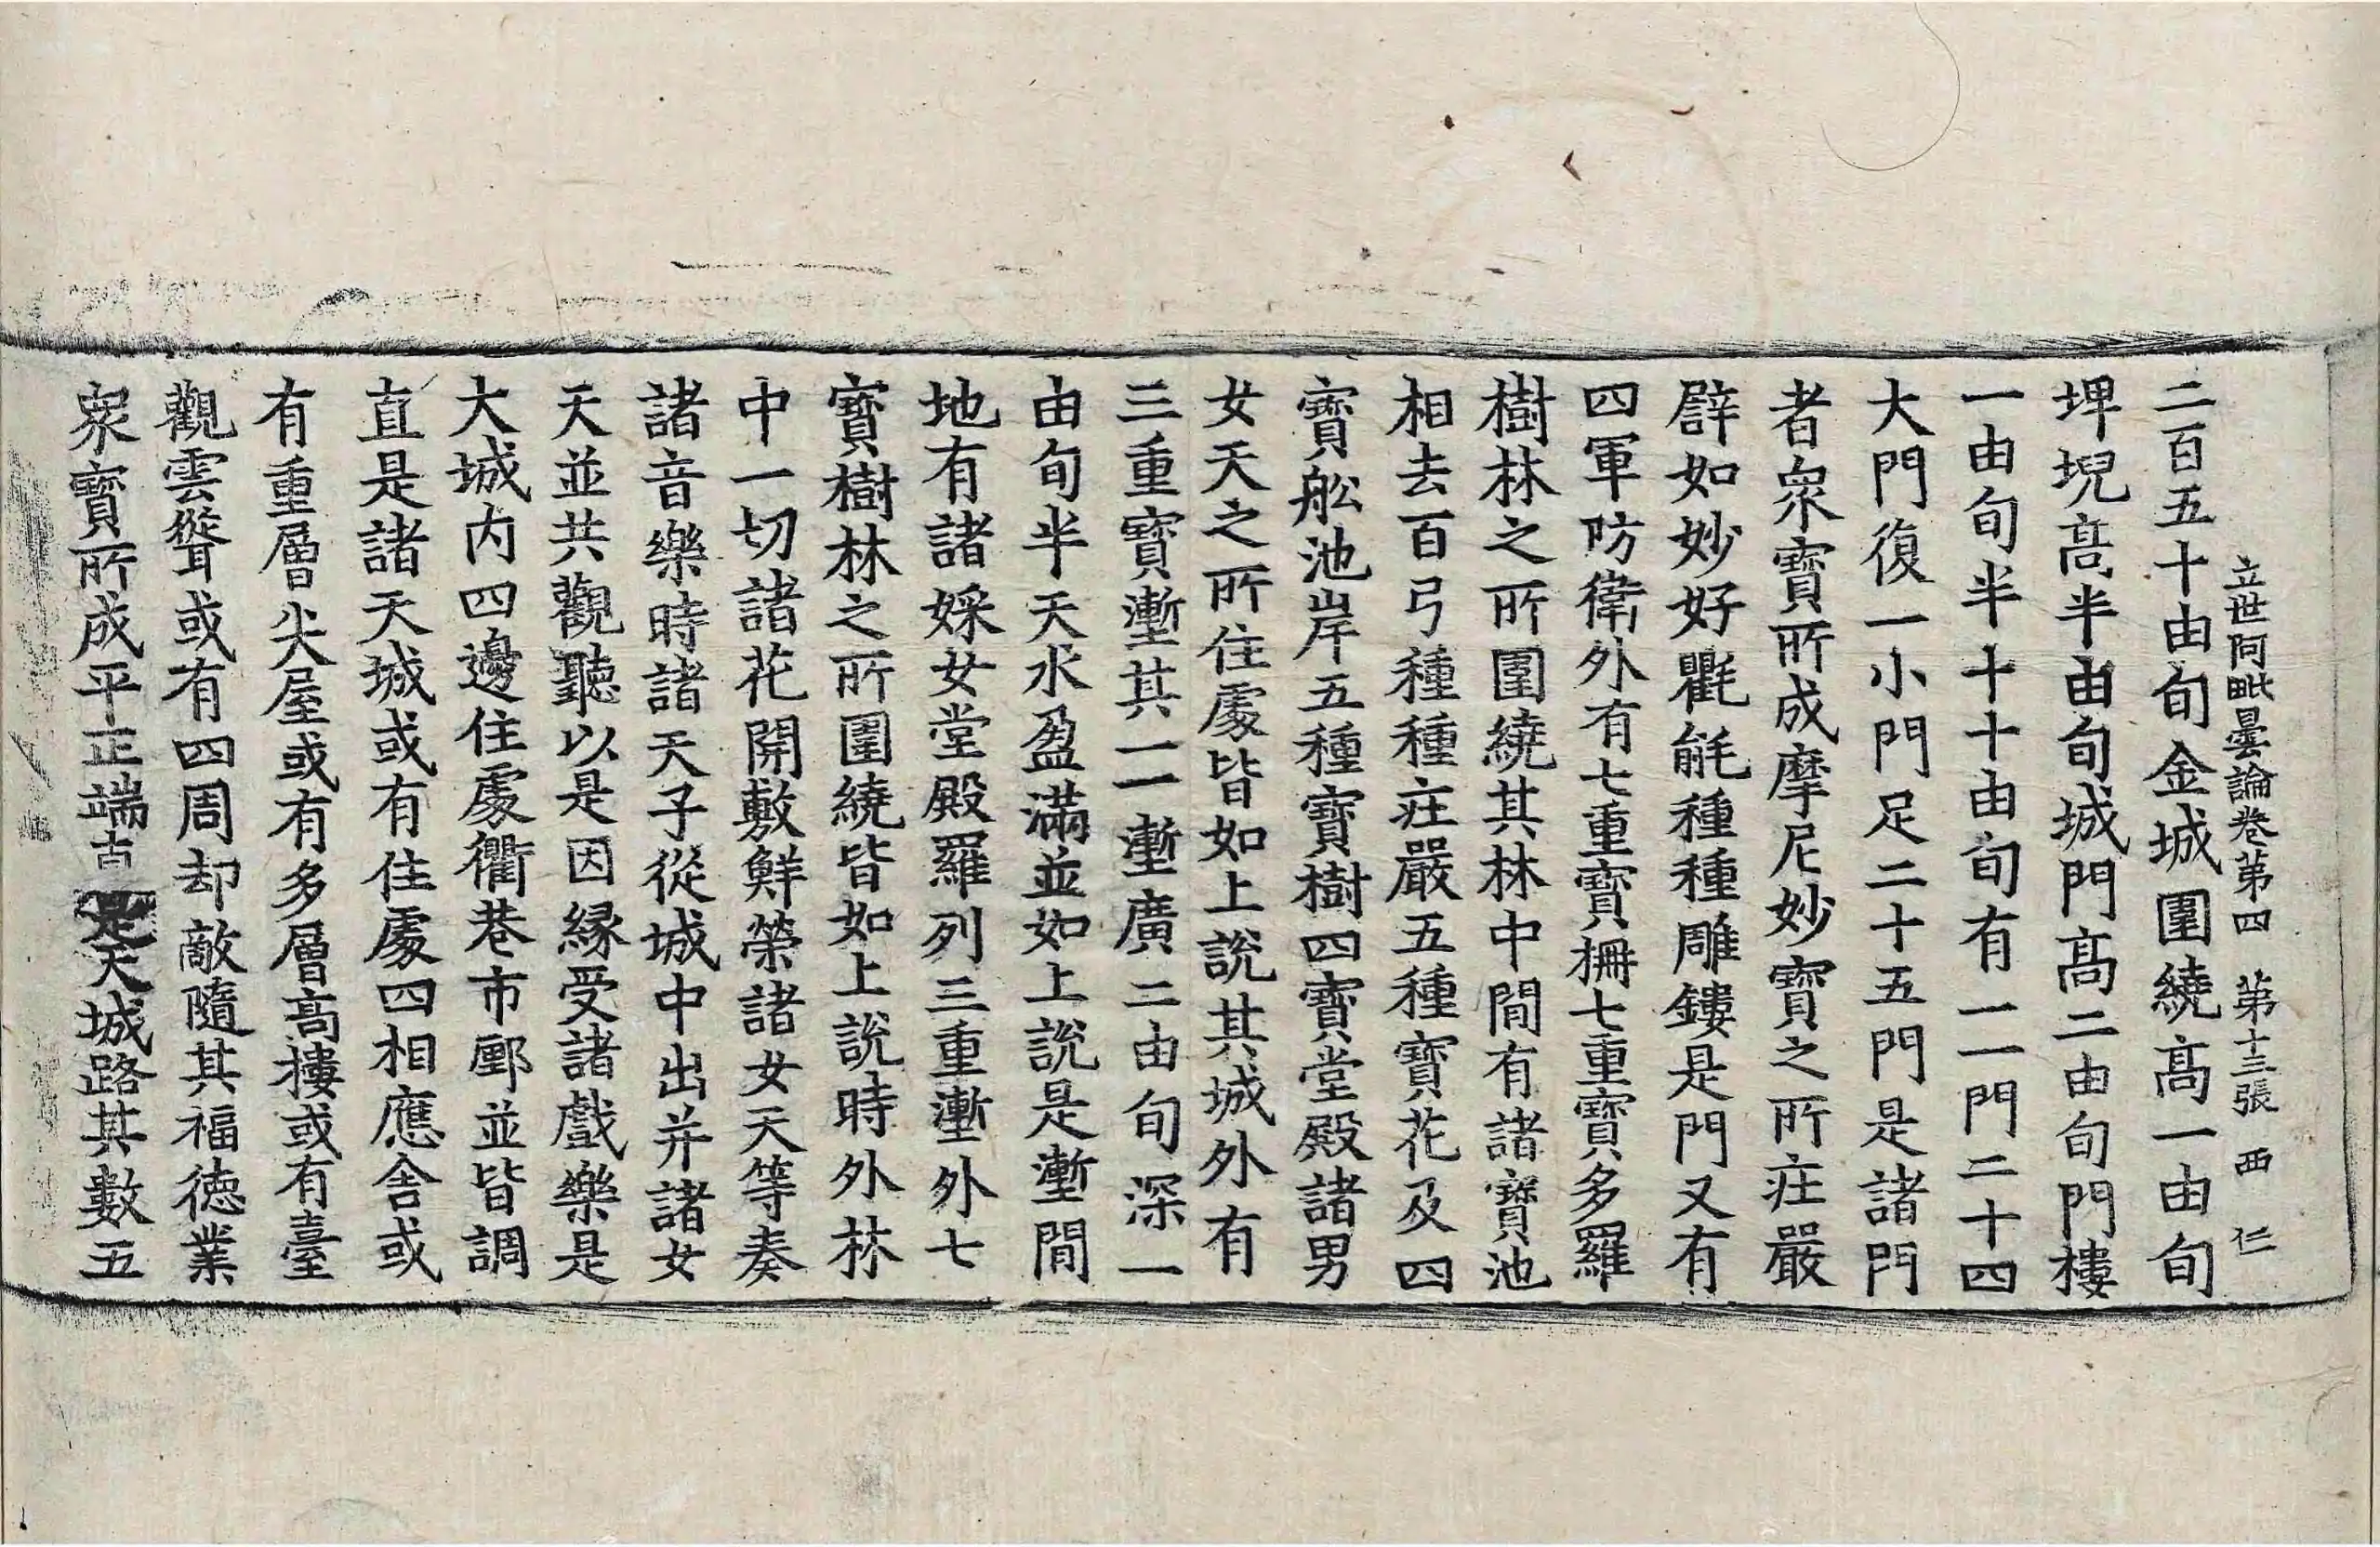 立世阿毗曇論卷第四 第十三張 西 仁
二百五十由旬金城圍繞髙一由旬
埤堄髙半由旬城門髙二由旬門樓
一由旬半十十由旬有一一門二十四
大門復一小門足二十五門是諸門
者衆寶所成摩尼妙寶之所莊嚴
譬如妙好氍毹種種雕鏤是門又有
四軍防衛外有七重寶柵七重寶多羅
樹林之所圍繞其林中間有諸寶池
相去百弓種種莊嚴五種寶花及四
寶舩池岸五種寶樹四寶堂殿諸男
女天之所住處皆如上說其城外有
三重寶壍其一一壍廣二由旬深一
由旬半天水盈滿並如上說是壍間
地有諸婇女堂殿羅列三重壍外七
寶樹林之所圍繞皆如上說時外林
中一切諸花開敷鮮榮諸女天等奏
諸音樂時諸天子從城中出并諸女
天並共觀聽以是因緣受諸戲樂是
大城內四邊住處衢巷市鄽並皆調
直是諸天城或有住處四相應舍或
有重層尖屋或有多層髙樓或有臺
觀雲聳或有四周却敵隨其福德業
衆寶所成平正端古是天城路其數五